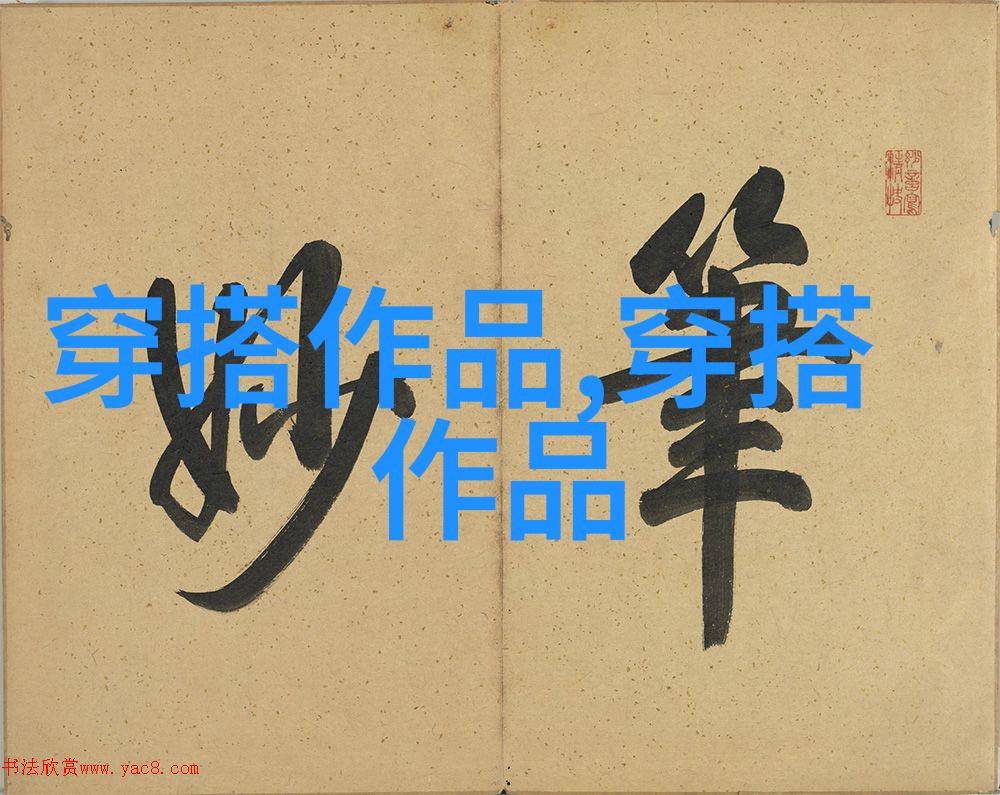 穿搭作品,穿搭
作品
筆
妙
书法欣赏www.yac8.com